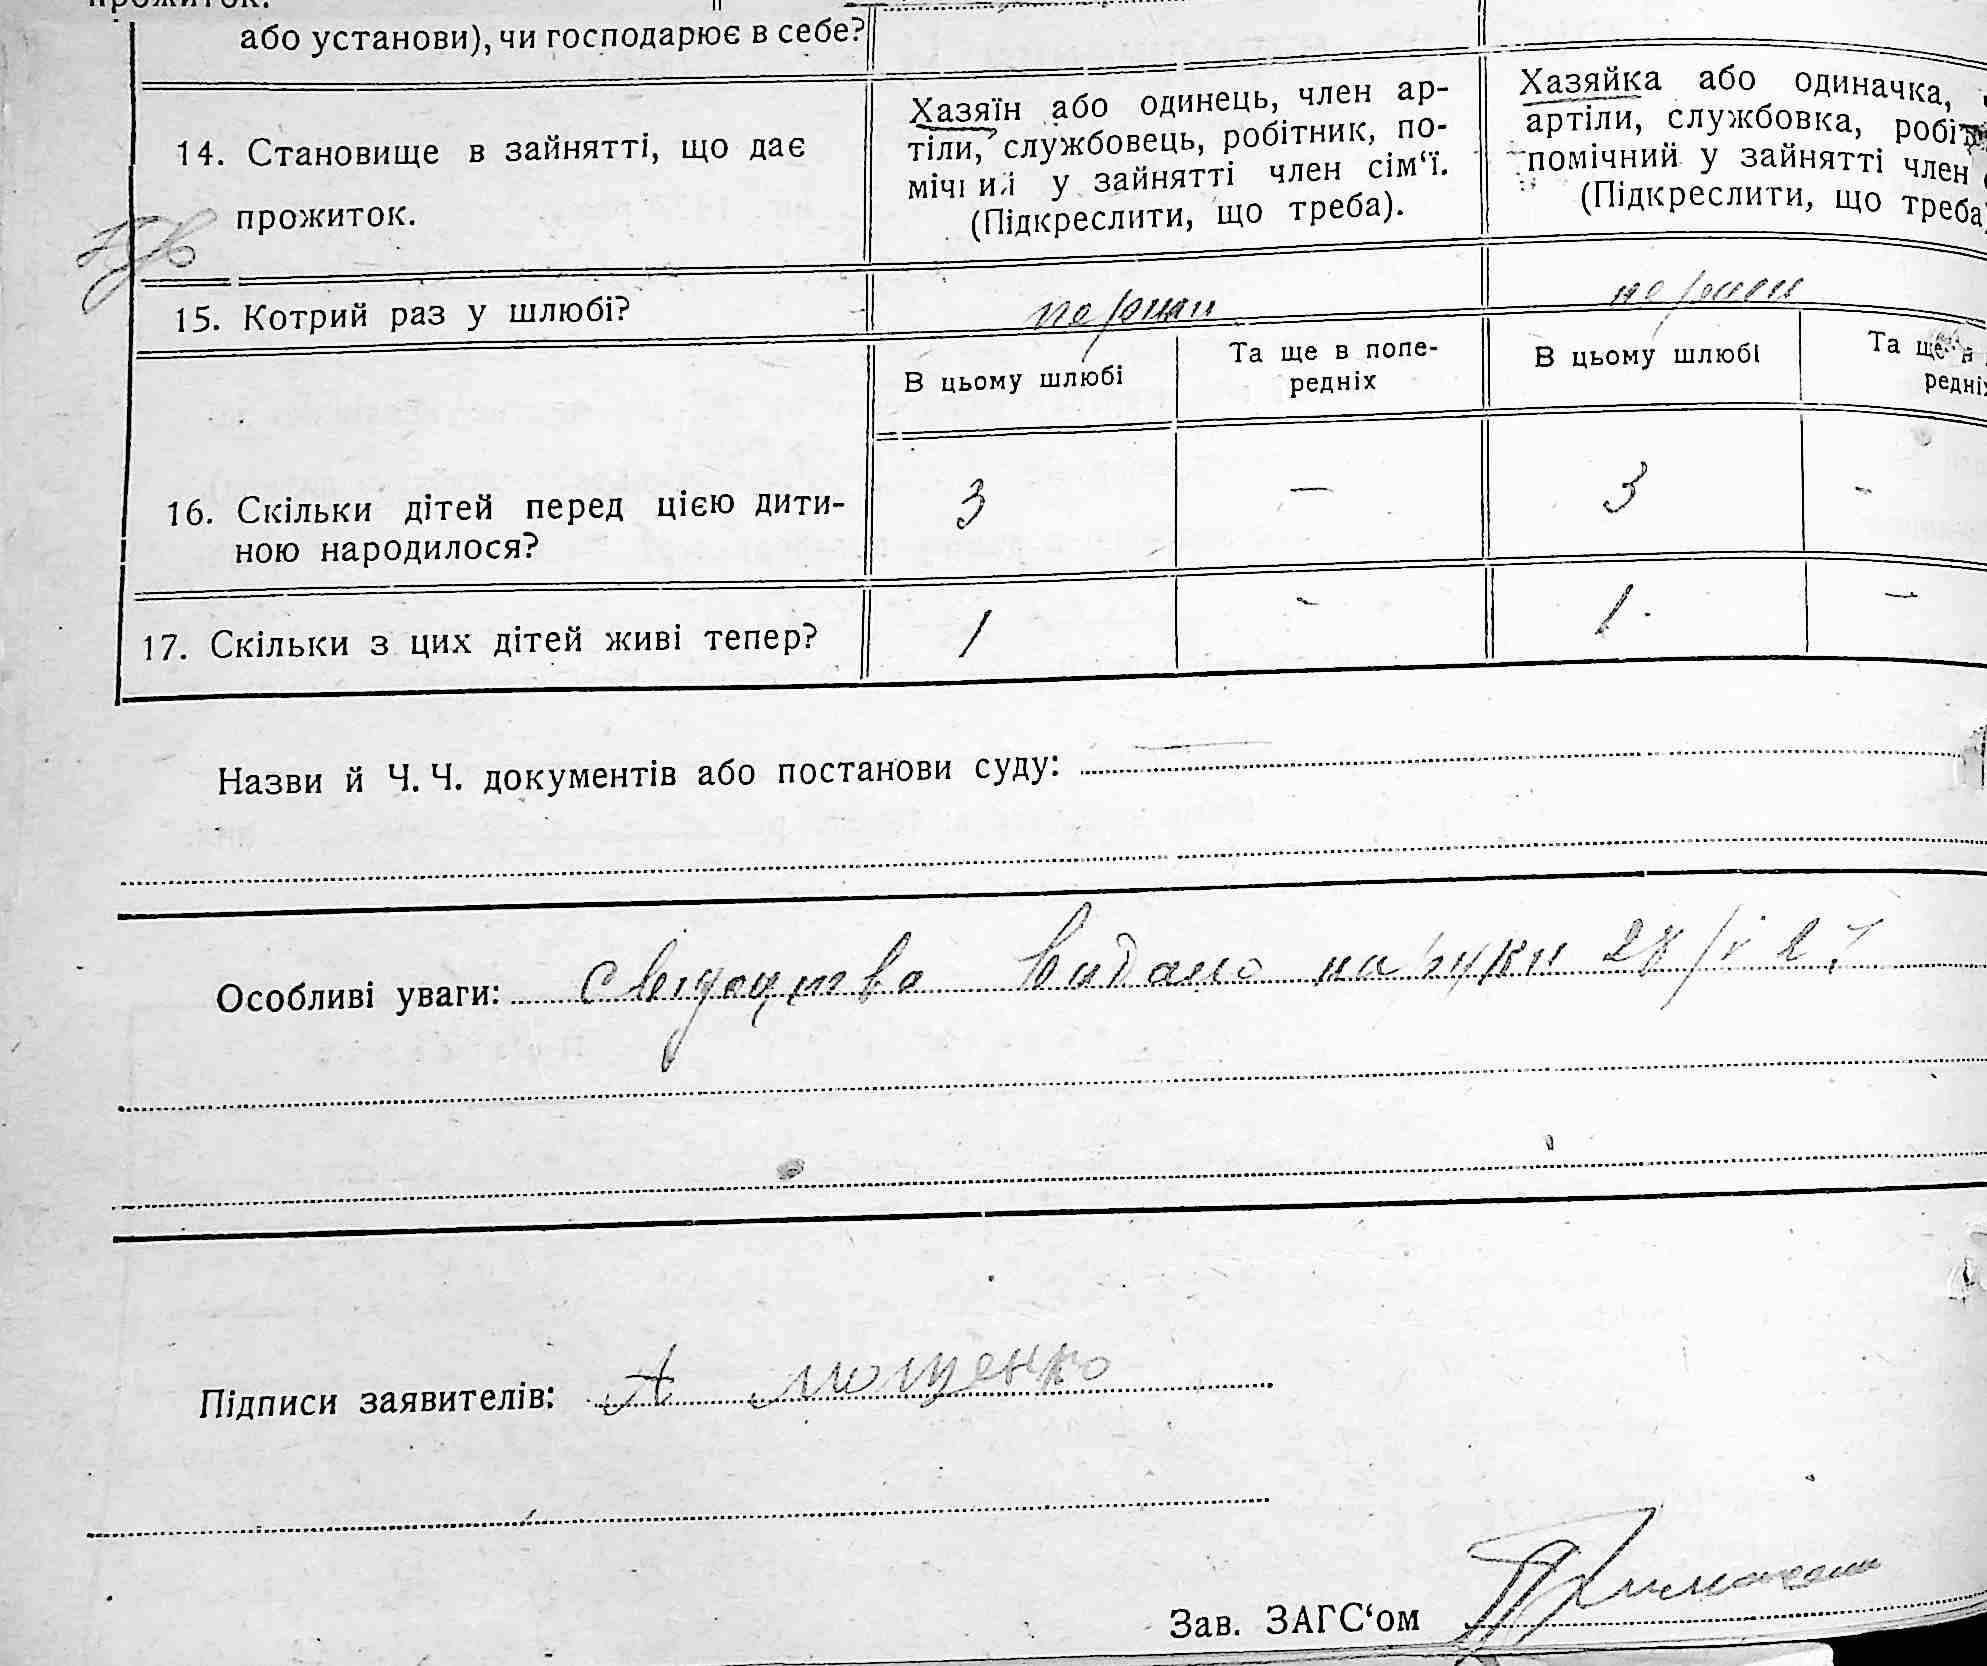 прожиток.
або установи), чи господарює в себе?
14. Становище в зайнятті, що дає
прожиток.
Хазяїн або одинець, член ар-
тіли, службовець, робітник, по-
мічний у зайнятті член сім‘ї.
(Підкреслити, що треба).
Хазяйка або одиначка,
артіли, службовка, робіт
помічний у зайнятті член
(Підкреслити, що треба
15. Котрий раз у шлюбі?
первий
первий
В цьому шлюбі
Та ще в попе-
редніх
В цьому шлюбі
Та ще в
редніх
16. Скільки дітей перед цією дити-
ною народилося?
3 — 3 -
17. Скільки з цих дітей живі тепер?
1 - 1. —
Назви й Ч. Ч. документів або постанови суду:
Особливі уваги: свідоцтво видано на руки
Підписи заявителів: А мощенко
Зав. ЗАГС‘ом